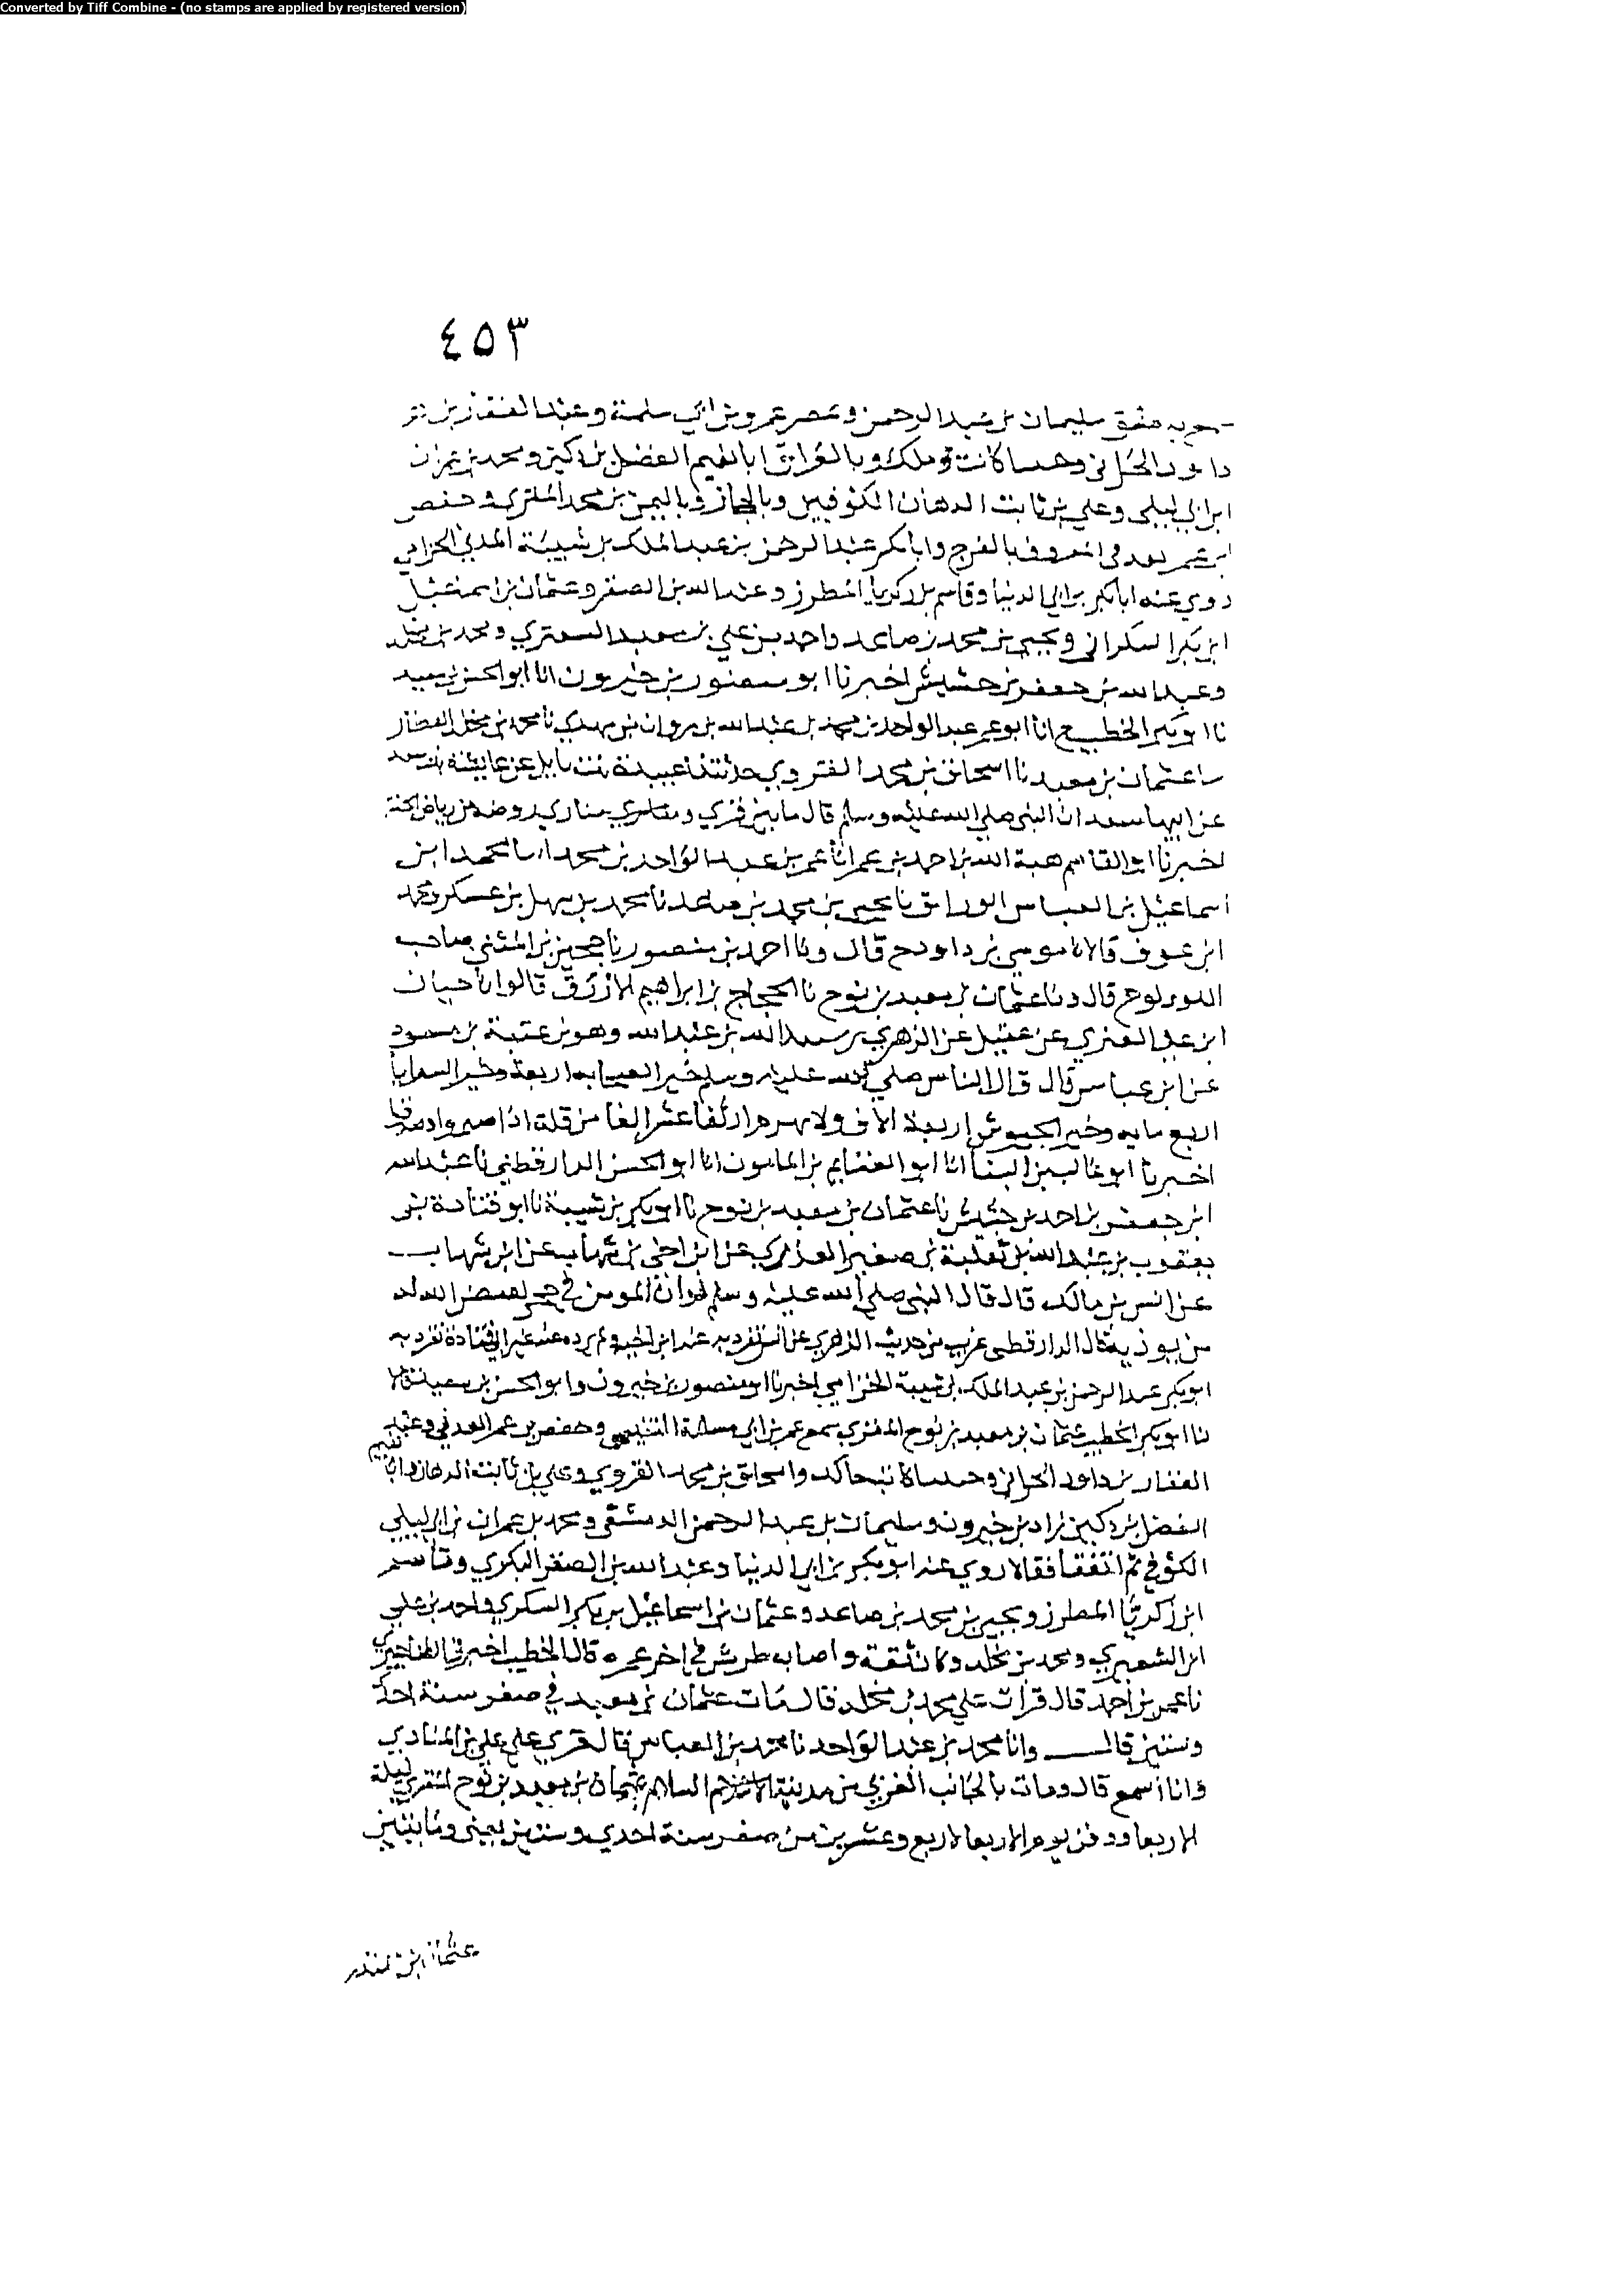 Converted by Tiff Combine - (no stamps are applied by registered version)
٤٥٣
سليمان بن عبد الرحمن وبمصر عمرو بن ابي سلمة وعبد الغفار بن
داود الحراني وحسا كاتب وبالعراق ابا نعيم الفضل بن دكين ومحمد بن عمران
ابن ابي ليلى وعلي بن ثابت الدهان الكوفيين وبالحجاز وباليمن بن محمد وحفص
ابن عمر المعروف بالفرج وابا بكر عبد الرحمن بن عبد الملك بن شيبة المدني الحزامي
روي عنه ابا بكر بن ابي الدنيا وقاسم بن زكريا المطرز وعبد الله بن الصقر وعثمان بن اسمعيل
ابن بكر السكراني ويحيى بن محمد بن صاعد واحمد بن علي بن سعيد ومحمد بن مخلد
وعبد الله بن جعفر بن حشيش اخبرنا ابو منصور بن خيرون انا ابو الحسن بن سعيد
نا ابو بكر الخطيب انا ابو عمر عبد الواحد بن محمد بن عبد الله بن مروان بن مهدي نا محمد بن مخلد العطار
نا عثمان بن سعيد نا اسحاق بن محمد الفروي حدثتنا عبيدة بنت نابل عن عايشة بنت سعد
عن ابيها سعد ان النبي صلى الله عليه وسلم قال ما بين قبري ومنبري روضة من رياض الجنة
اخبرنا ابو القاسم هبة الله بن احمد بن عمر انا عمر بن عبد الواحد بن محمد انا محمد ابن
اسماعيل بن العباس الوراق نا يحيى بن محمد بن صاعد نا محمد بن سهل بن عسكر ومحمد
ابن عوف قالا نا موسى بن داود ح قال ونا احمد بن منصور نا حجين بن المثنى صاحب
اللولو ح قال ونا عثمان بن سعيد بن نوح نا الحجاج بن ابراهيم الازرق قالوا نا حبان
ابن علي العنزي عن عقيل عن الزهري عن عبيد الله بن عبد الله وهو بن عتبة بن مسعود
عن ابن عباس قال قال الناس صلى الله عليه وسلم خير الصحابه اربعة وخير السرايا
اربع مايه وخير الجيوش اربعة الاف ولا يهزم اثنا عشر الفا من قلة اذا صبروا وصدقوا
اخبرنا ابو غالب بن البنا انا ابو الغنايم بن المامون انا ابو الحسن الدارقطني نا عبد الله
ابن جعفر بن احمد بن حشيش نا عثمان بن سعيد بن نوح نا ابو بكر بن شيبة نا ابو قتادة بن
يعقوب بن عبد الله بن ثعلبة بن صغير العذري عن ابن اخي بن شهاب عن ابن شهاب
عن انس بن مالك قال قال النبي صلى الله عليه وسلم لو ان المومن في جحر لقيض الله له
من يوذيه قال الدارقطني غريب من حديث الزهري عن انس تفرد به عنه ابن اخيه ولم يروه عنه غير ابي قتادة تفرد به
ابو بكر عبد الرحمن بن عبد الملك بن شيبة الحزامي اخبرنا ابو منصور بن خيرون وابو الحسن بن سعيد قالا
نا ابو بكر الخطيب عثمان بن سعيد بن نوح المقري سمع عمر بن ابي مسلمة التنيسي وحفص بن عمر العدني وعبد
الغفار بن داود الحراني وحسا كاتب واسحاق بن محمد الفروي وعلي بن ثابت الدهان وابا نعيم
الفضل بن دكين زاد بن خيرون وسليمان بن عبد الرحمن الدمشقي ومحمد بن عمران بن ابي ليلى
الكوفي ثم اتفقا فقالا روي عنه ابو بكر بن ابي الدنيا وعبد الله بن الصقر السكري وقاسم
ابن زكريا المطرز ويحيى بن محمد بن صاعد وعثمان بن اسماعيل بن بكر السكري واحمد بن علي
ابن الشعيري ومحمد بن مخلد وكان ثقة واصابه طرش في اخر عمره قال الخطيب اخبرني الطناجيري
نا عمر بن احمد قال قرات على محمد بن مخلد قال مات عثمان بن سعيد في صفر سنة احدى
وستين قال وانا محمد بن عبد الواحد نا محمد بن العباس قال قري على علي بن المنادي
وانا اسمع قال ومات بالجانب الغربي من مدينة السلام عثمان بن سعيد بن نوح المقري ليلة
الاربعا ودفن يوم الاربعا لاربع وعشرين من صفر سنة احدي وستين يعني ومايتين
عثمان بن المنذر